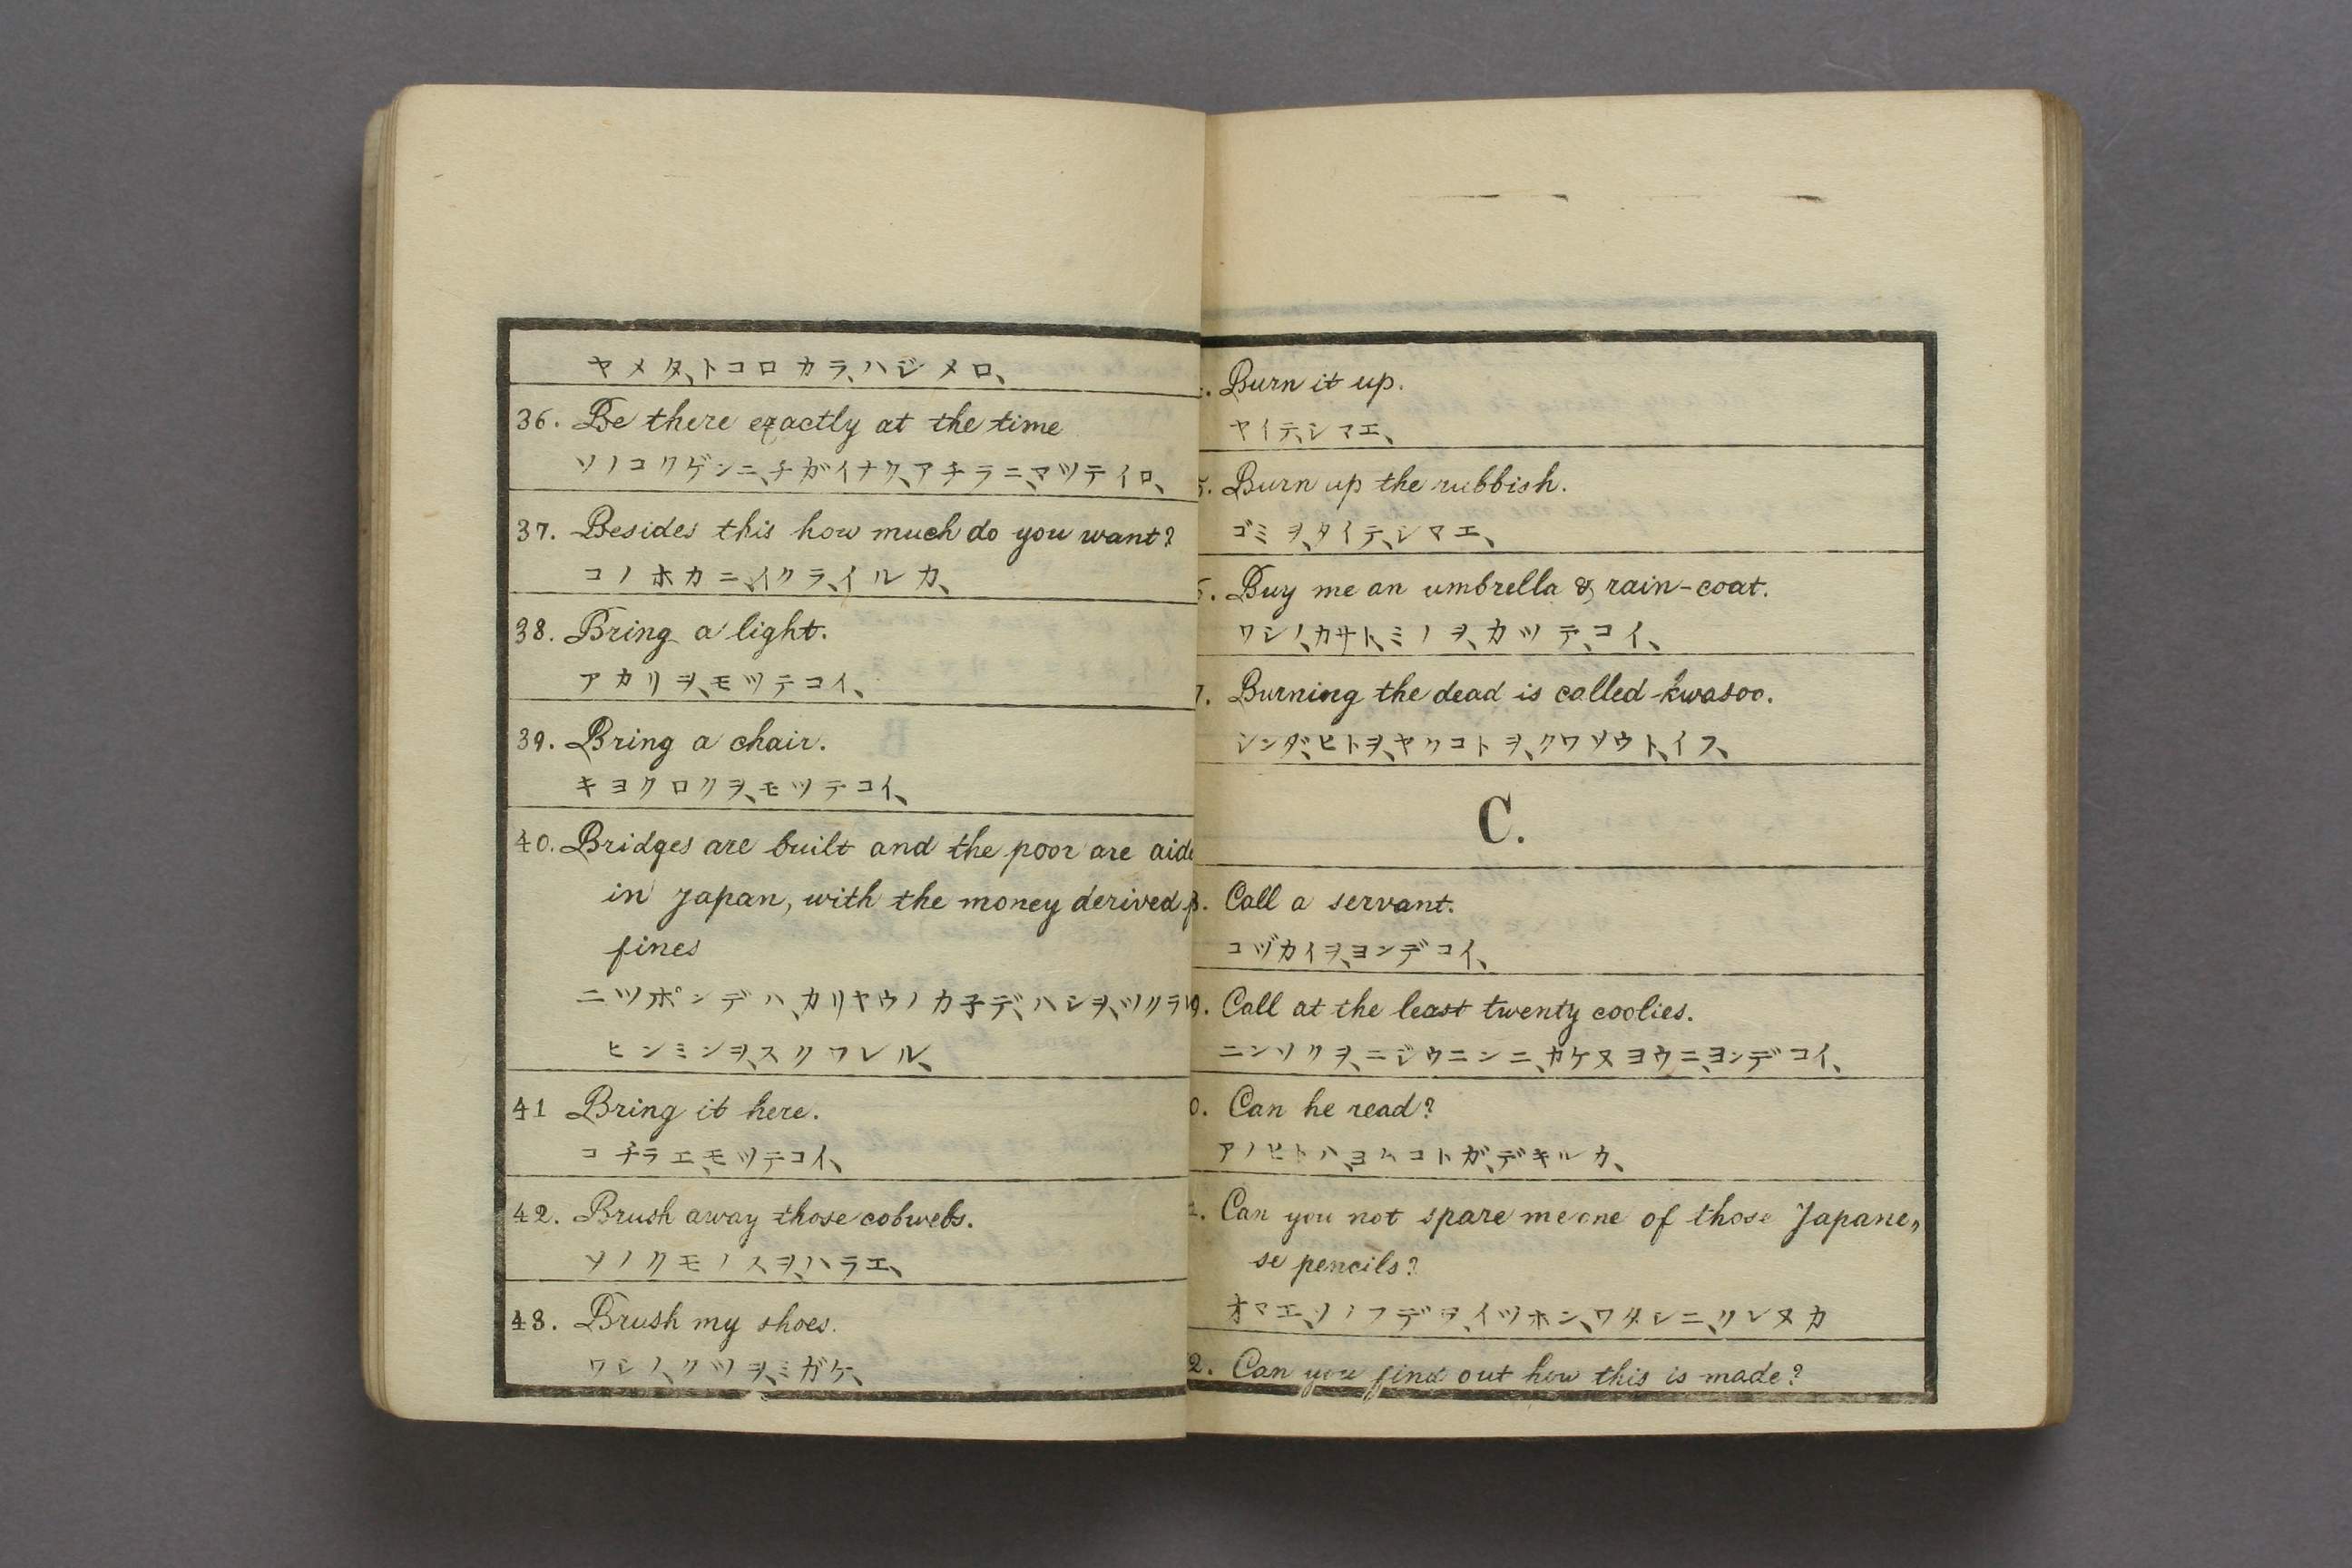 ヤメタ、トコロカラ、ハジメロ、
36. Be there exactly at the time
ソノコクゲンニ、チガイナク、アチラニ、マツテイロ、
37. Besides this how much do you want?
コノホカニ、イクラ、イルカ、
38. Bring a light.
アカリヲ、モツテコイ、
39. Bring a chair.
キヨクロクヲ、モツテコイ、
40. Bridges are built and the poor are
in Japan, with the money derived
fines
ニツポンデハ、カリヤウノカ子デ、ハシヲ、ツクラ
ヒンミンヲ、スクワレル、
41 Bring it here.
コチラエ、モツテコイ、
42. Brush away those cobwebs.
ソノクモノスヲ、ハラエ、
43. Brush my shoes.
ワシノ、クツヲ、ミガケ、
Burn it up.
ヤイテ、シマエ、
Burn up the rubbish.
ゴミヲ、タイテ、シマエ、
Buy me an umbrella & rain-coat.
ワシノ、カサト、ミノヲ、カツテ、コイ、
Burning the dead is called kwasoo.
シンダ、ヒトヲ、ヤクコトヲ、クワソウト、イフ、
C.
Call a servant.
コヅカイヲ、ヨンデコイ、
9. Call at the least twenty coolies.
ニンソクヲ、ニジウニンニ、カケヌヨウニ、ヨンデコイ、
0. Can he read?
アノヒトハ、ヨムコトガ、デキルカ、
Can you not spare me one of those Japane„
se pencils?
オマエ、ソノフデヲ、イツホン、ワタシニ、クレヌカ
2. Can you find out how this is made?